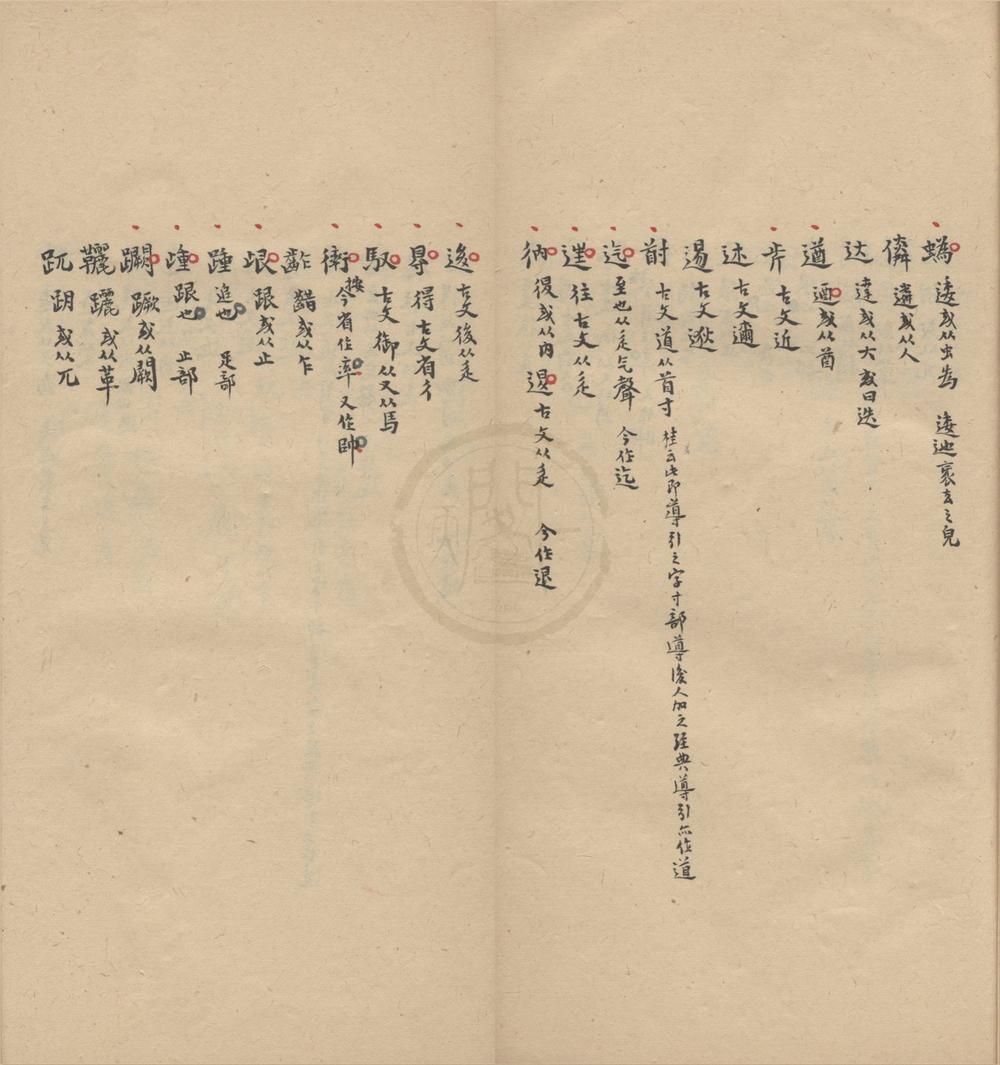 蟡 逶或从虫為 逶迆衺去之皃
僯 遴或从人
达 達或从大或曰迭
遒 迺或从酋
岸 古文近
迩 古文邇
逷 古文逖
䢐 古文道从首寸 桂云此即導引之字寸部導後人加之經典導引亦作道
迄 至也从辵乞聲 今作迄
𨓹 往古文从辵
衲 復或从內 退 古文从辵 今作退
逡 古文後从辵
㝵 得古文省彳
馭 古文御从又从馬
衛 按今省作率又作帥
齚 齰或从乍
㫔 跟或从止
踵 追也 足部
歱 跟也 止部
䠣 蹶或从闕
韆 躧或从革
䟘 跀或从兀